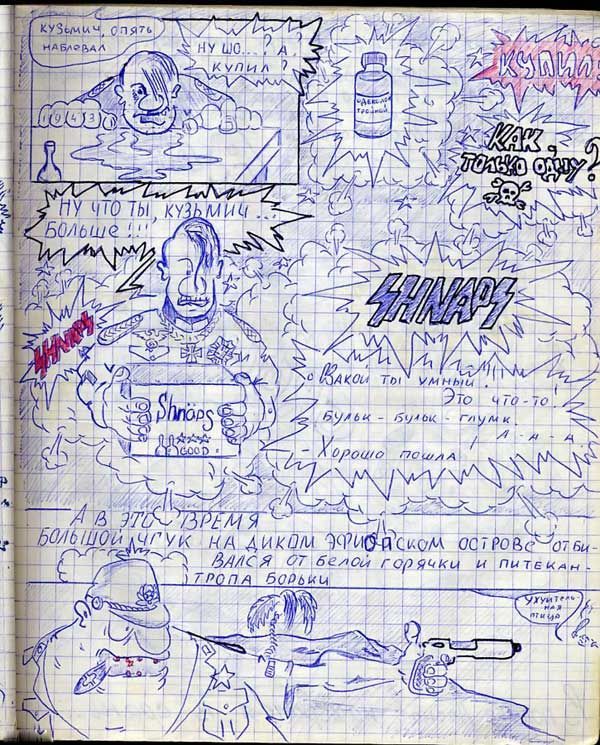 КУЗЬМИЧ, ОПЯТЬ
НАБЛЕВАЛ
НУ ШО...? А?
КУПИЛ?
1943
ОДЕКОЛОН
ТРОЙНОЙ
КУПИЛ
КАК,
ТОЛЬКО ОДНУ?
НУ ЧТО ТЫ, КУЗЬМИЧ...
БОЛЬШЕ!!!
SHNAPS
SHNAPS
Shnäps
GOOD
- ВАКОЙ ТЫ УМНЫЙ!
ЭТО ЧТО-ТО!
БУЛЬК-БУЛЬК-ГЛУМК.
А-А-А
- ХОРОШО ПОШЛА!
А В ЭТО ВРЕМЯ
БОЛЬШОЙ ЧГУК НА ДИКОМ ЭФИОПСКОМ ОСТРОВЕ ОТБИ-
ВАЛСЯ ОТ БЕЛОЙ ГОРЯЧКИ И ПИТЕКАН-
ТРОПА БОРЬКИ
ПТИЦА